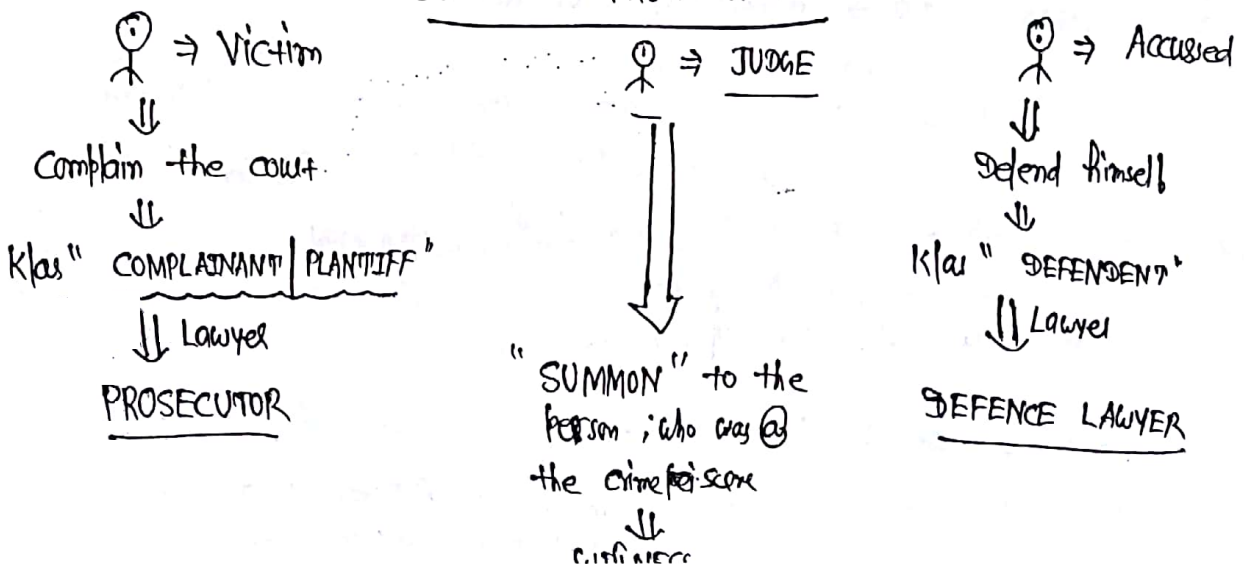 ⇒ Victim
⇓
Complain the court.
⇓
K/as " COMPLAINANT | PLANTIFF "
⇓ Lawyer
PROSECUTOR
⇒ JUDGE
" SUMMON " to the
person ; who was @
the crime scene
⇓
⇒ Accussed
⇓
Defend himself
⇓
K/as " DEFENDENT "
⇓ Lawyer
DEFENCE LAWYER